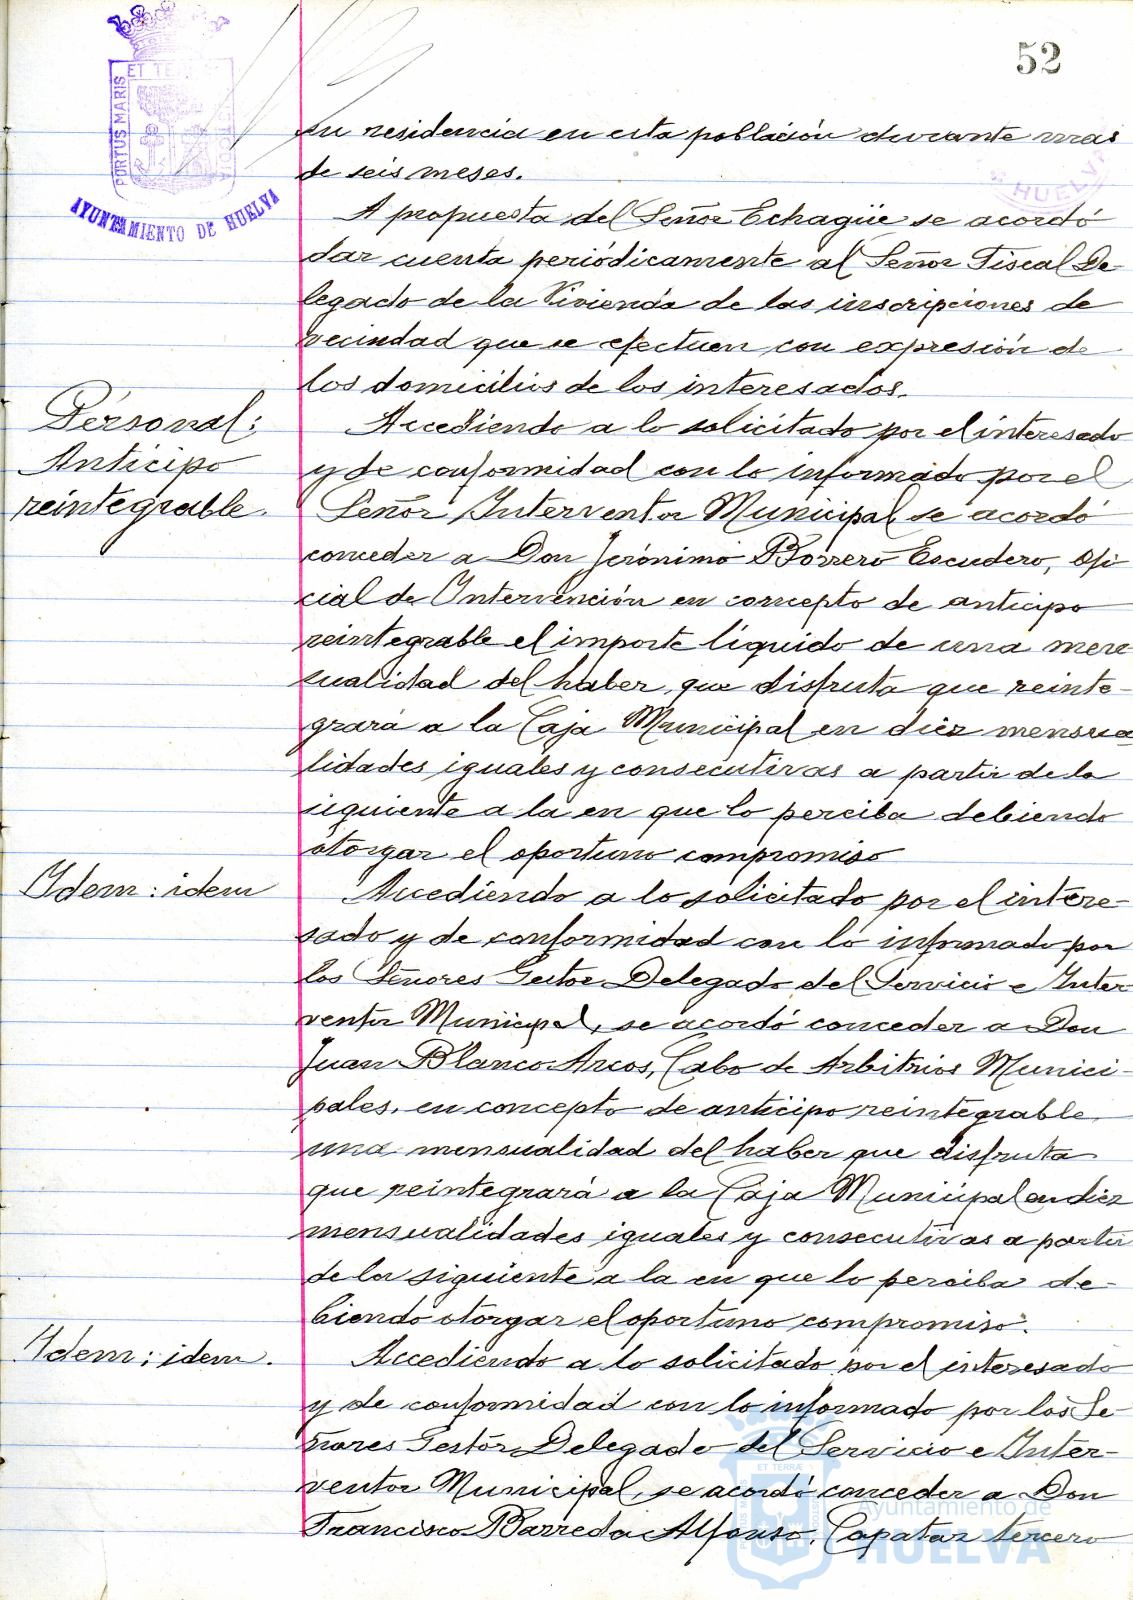 52
ET TERRÆ
PORTUS MARIS
AYUNTAMIENTO DE HUELVA
HUELVA
su residencia en esta población durante mas
de seis meses.
A propuesta del Señor Echagüe se acordó
dar cuenta periódicamente al Señor Fiscal De-
legado de la Vivienda de las inscripciones de
vecindad que se efectuen con expresión de
los domicilios de los interesados.
Personal:
Anticipo
reintegrable.
Accediendo a lo solicitado por el interesado
y de conformidad con lo informado por el
Señor Interventor Municipal se acordó
conceder a Don Jerónimo Borrero Escudero, Ofi
cial de Intervención en concepto de anticipo
reintegrable el importe líquido de una men
sualidad del haber que disfruta que reinte-
grará a la Caja Municipal en diez mensua
lidades iguales y consecutivas a partir de la
siguiente a la en que lo perciba debiendo
otorgar el oportuno compromiso
Idem: idem
Accediendo a lo solicitado por el intere-
sado y de conformidad con lo informado por
los Señores Gestor Delegado del Servicio e Inter
ventor Municipal, se acordó conceder a Don
Juan Blanco Arcos, Cabo de Arbitrios Munici-
pales, en concepto de anticipo reintegrable
una mensualidad del haber que disfruta
que reintegrará a la Caja Municipal en diez
mensualidades iguales y consecutivas a partir
de la siguiente a la en que lo perciba de-
biendo otorgar el oportuno compromiso.
Idem: idem.
Accediendo a lo solicitado por el interesado
y de conformidad con lo informado por los Se-
ñores Gestor Delegado del Servicio e Inter-
ventor Municipal, se acordó conceder a Don
Francisco Barreda Alfonso, Capataz tercero
Ayuntamiento de
HUELVA